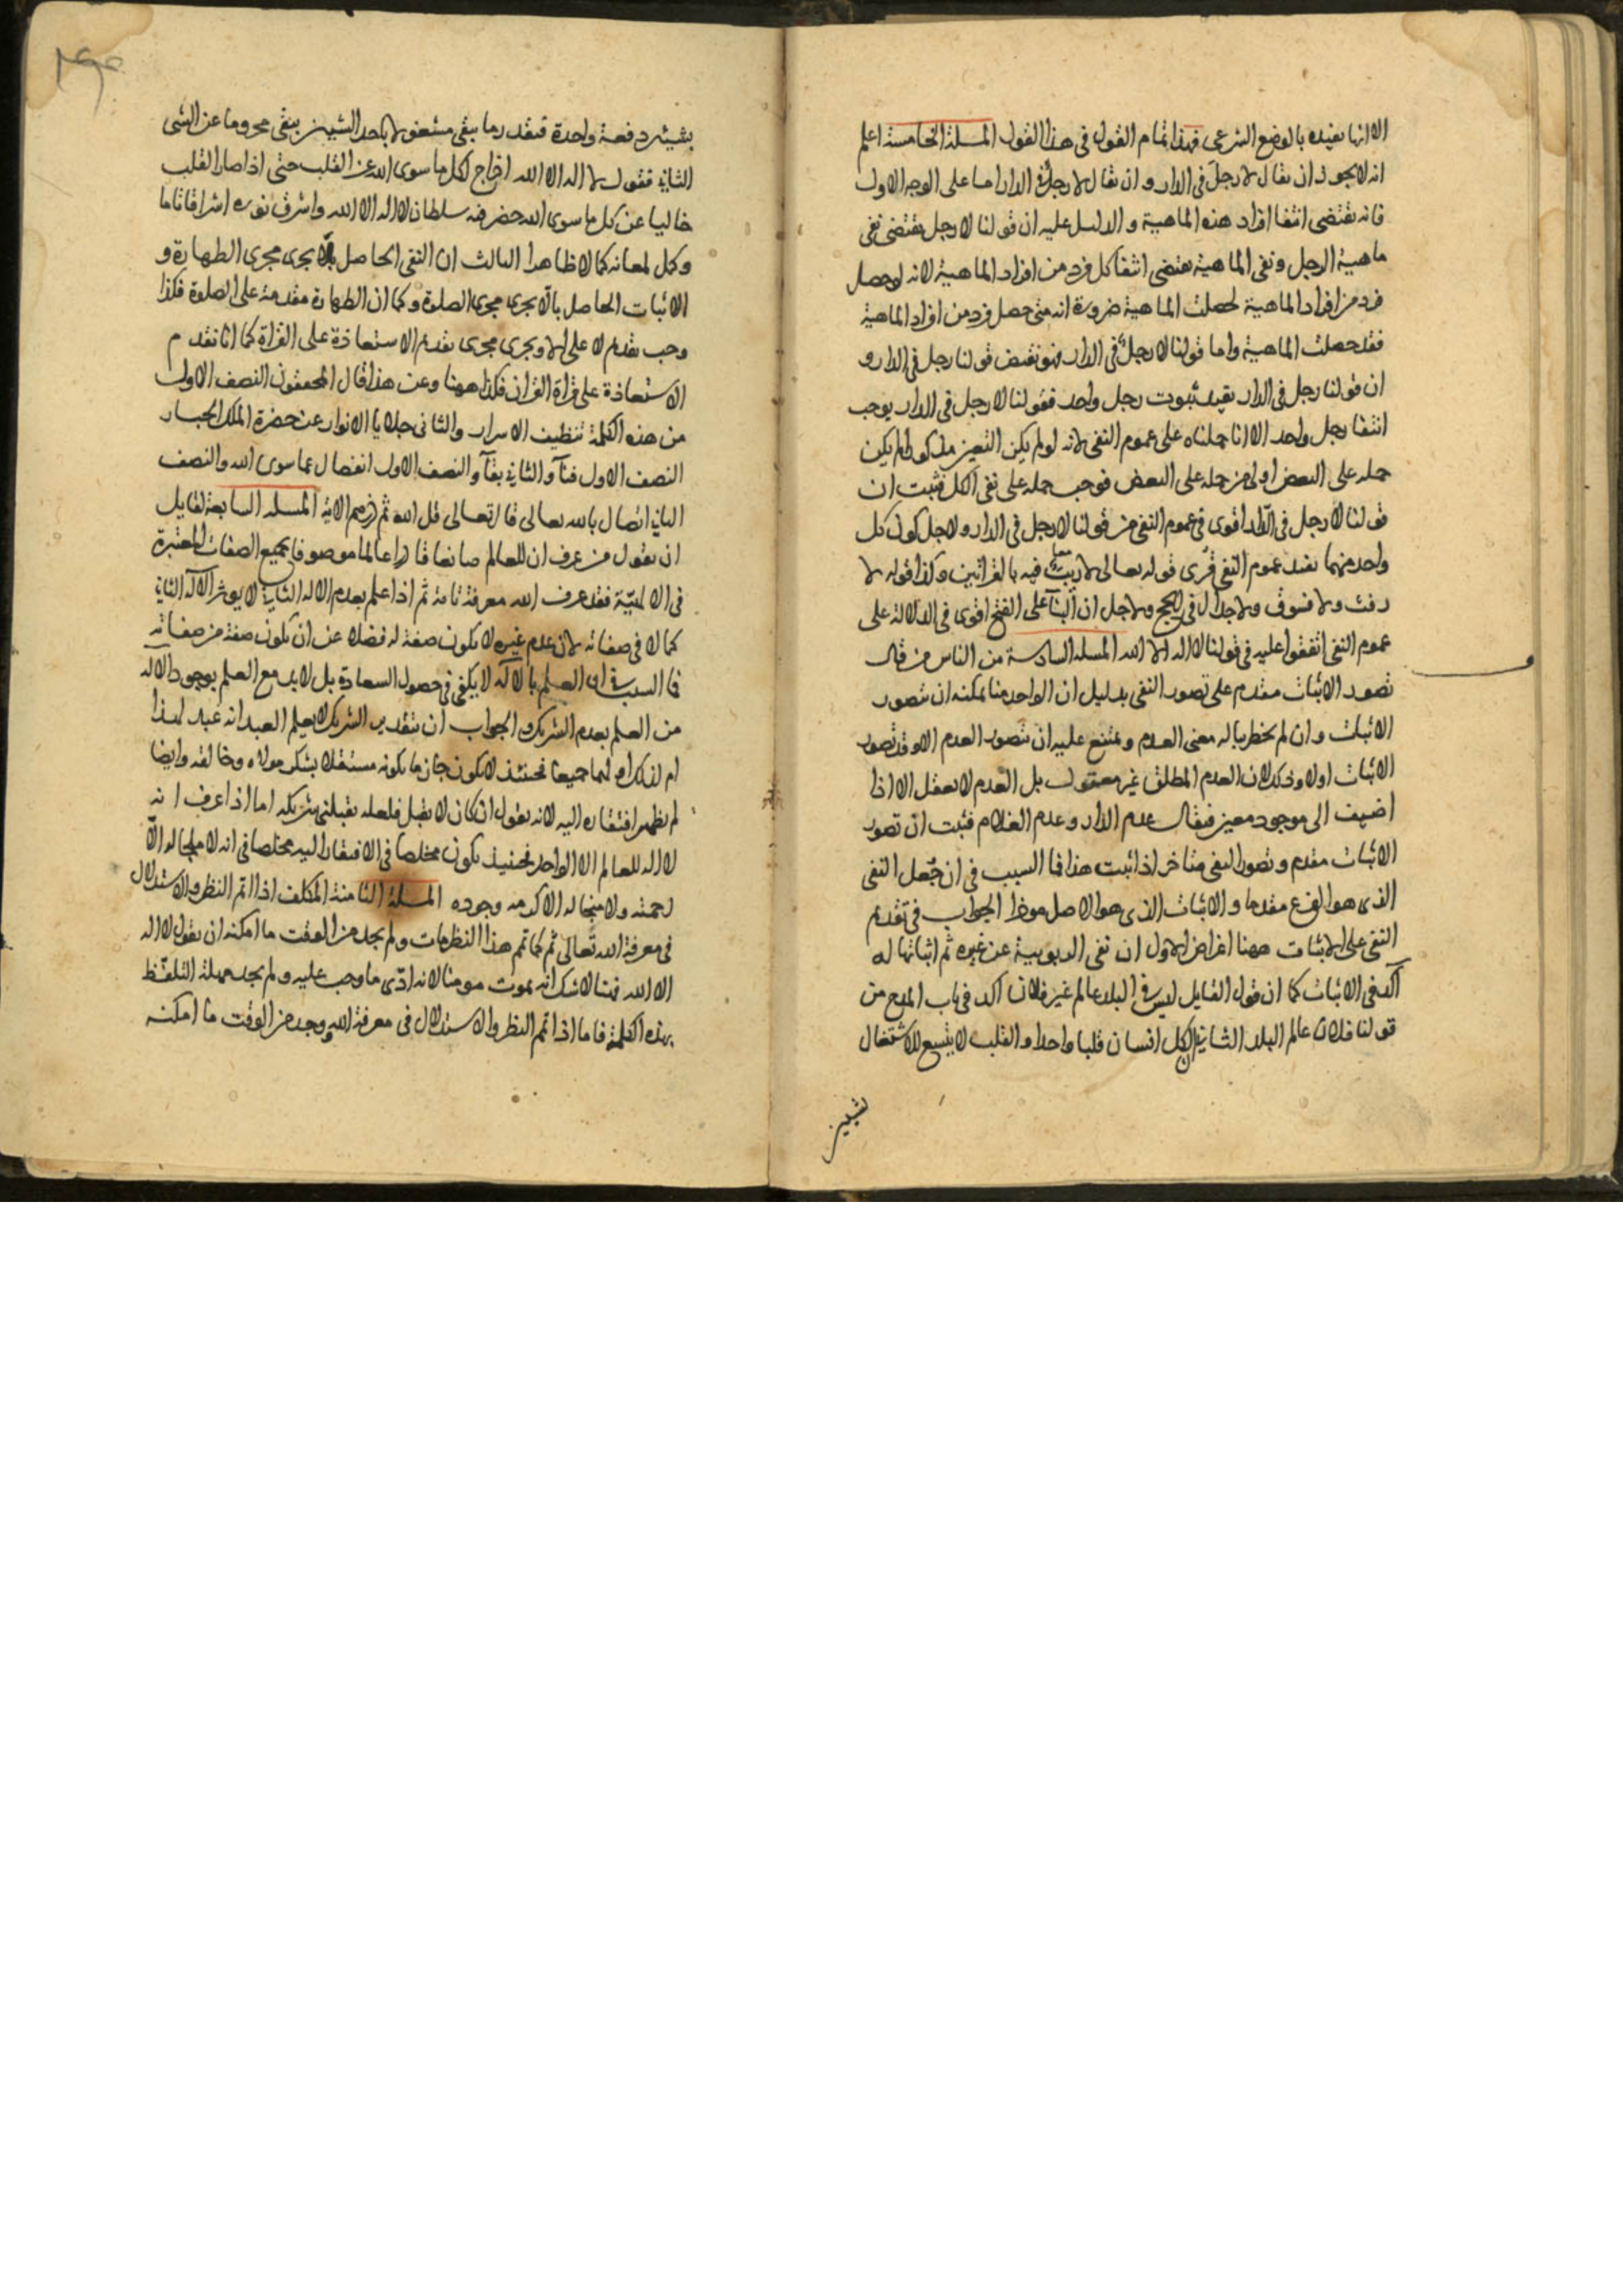 الا انها تفيده بالوضع الشرعى فهذا تمام القول فى هذا القول المسلة الخامسة اعلم
انه لا يجوز ان يقال لا رجلَ فى الدار و ان يقال لا رجلٌ فى الدار اما على الوجه الاول
فانه يقتضى انتفا افراد هذه الماهية و الدليل عليه ان قولنا لا رجل يقتضى نفى
ماهية الرجل ونفى الماهية يقتضى انتفا كل فرد من افراد الماهية لانه لو حصل
فرد من افراد الماهية لحصلت الماهية ضرورة انه متى حصل فرد من افراد الماهية
فقد حصلت الماهية واما قولنا لا رجلٌ فى الدار فهو نقيض قولنا رجل فى الدار و
ان قولنا رجل فى الدار يفيد ثبوت رجل واحد فقولنا لا رجل فى الدار يوجب
انتفا رجل واحد الا انا حملناه على عموم النفى لانه لو لم يكن التعيين مذكورا لم يكن
حمله على البعض اولى من حمله على البعض فوجب حمله على نفى الكل فثبت ان
قولنا لا رجل فى الدار اقوى فى عموم النفى من قولنا لا رجل فى الدار ولاجل كون كل
واحد منهما يفيد عموم النفى قُرى قوله تعالى لا ريب فيه بالقراتين وكذا قوله لا
رفث ولا فسوق ولا جدال فى الحج ولاجل ان البنآ على الفتح اقوى فى الدلالة على
عموم النفى اتفقوا عليه فى قولنا لا اله الا الله المسلة السادسة من الناس من قال
تصور الاثبات مقدم على تصور النفى بدليل ان الواحد منا يمكنه ان يتصور
الاثبات و ان لم يخطر بباله معنى العدم و يمتنع عليه ان يتصور العدم الا وقد تصور
الاثبات اولا وذلك لان العدم المطلق غير معقول بل العدم لا يعقل الا اذا
اضيف الى موجود معين فيقال عدم الدار و عدم الغلام فثبت ان تصور
الاثبات مقدم و تصور النفى متاخر اذا ثبت هذا فما السبب فى ان جُعل النفى
الذى هو الفرع مقدما و الاثبات الذى هو الاصل موخرا الجواب فى تقديم
النفى على الاثبات ههنا اغراض الاول ان نفى الربوبية عن غيره ثم اثباتها له
آكد فى الاثبات كما ان قول القايل ليس فى البلد عالم غير فلان اكد فى باب المدح من
قولنا فلان عالم البلد الثانى ان لكل انسان قلبا واحدا و القلب لا يتسع للاشتغال
بشيئين دفعة واحدة فبقدر ما يبقى مشغولا باحد الشيئين يبقى محروما عن الشى
الثانى فقول لا اله الا الله اخراج لكل ما سوى الله عن القلب حتى اذا صار القلب
خاليا عن كل ما سوى الله حضر فيه سلطان لا اله الا الله و اشرق نوره اشراقا تاما
وكمل لمعانه كمالا ظاهرا الثالث ان النفى الحاصل بلا يجرى مجرى الطهارة و
الاثبات الحاصل بالّا يجرى مجرى الصلوة وكما ان الطهارة مقدمة على الصلوة فكذا
وجب تقديم لا على الا و يجرى مجرى تقديم الاستعاذة على القراة كما انا نقدم
الاستعاذة على قراة القران فكذا ههنا وعن هذا قال المحققون النصف الاول
من هذه الكلمة تنظيف الاسرار والثانى جلايا الانوار عن حضرة الملك الجبار
النصف الاول فنآ و الثانى بقآ و النصف الاول انفصال عما سوى الله والنصف
الثانى اتصال بالله تعالى قال تعالى قل الله ثم ذرهم الاية المسلة السابعة لقايل
ان يقول من عرف ان للعالم صانعا قادرا عالما موصوفا بجميع الصفات المعتبرة
فى الالهيّة فقد عرف الله معرفة تامة ثم اذا علم بعدم الاله الثانى لا يوثر الاله الثانى
كمالا فى صفاته لان عدم غيره لا يكون صفة له فضلا عن ان يكون صفة من صفاته
فما السبب فى ان العلم بالاله لا يكفى فى حصول السعادة بل لا بد مع العلم بوجود الاله
من العلم بعدم الشريك و الجواب ان بتقدير الشريك لا يعلم العبد انه عبد لهذا
ام لذلك او لهما جميعا فحينئذ لا يكون جازما بكونه مشتغلا بشكر مولاه وخالقه وايضا
لم يظهر افتقاره اليه لانه يقول ان كان لا يقبل فلعله يقبلنى شريكه اما اذا عرف انه
لا اله للعالم الا الواحد فحينئذ يكون مخلصا فى الافتقار اليه مخلصا فى انه لا ملجا له الّا
رحمته ولا منجا له الا كرمه وجوده المسلة الثامنة المكلف اذا اتم النظر والاستدلال
فى معرفة الله تعالى ثم كما تم هذا النظر مات و لم يجد من الوقت ما امكنه ان يقول لا اله
الا الله فهنا لا شك انه يموت مومنا لانه ادّى ما وجب عليه و لم يجد مهلة التلفّظ
بهذه الكلمة فاما اذا اتم النظر والاستدلال فى معرفة الله ووجد من الوقت ما امكنه